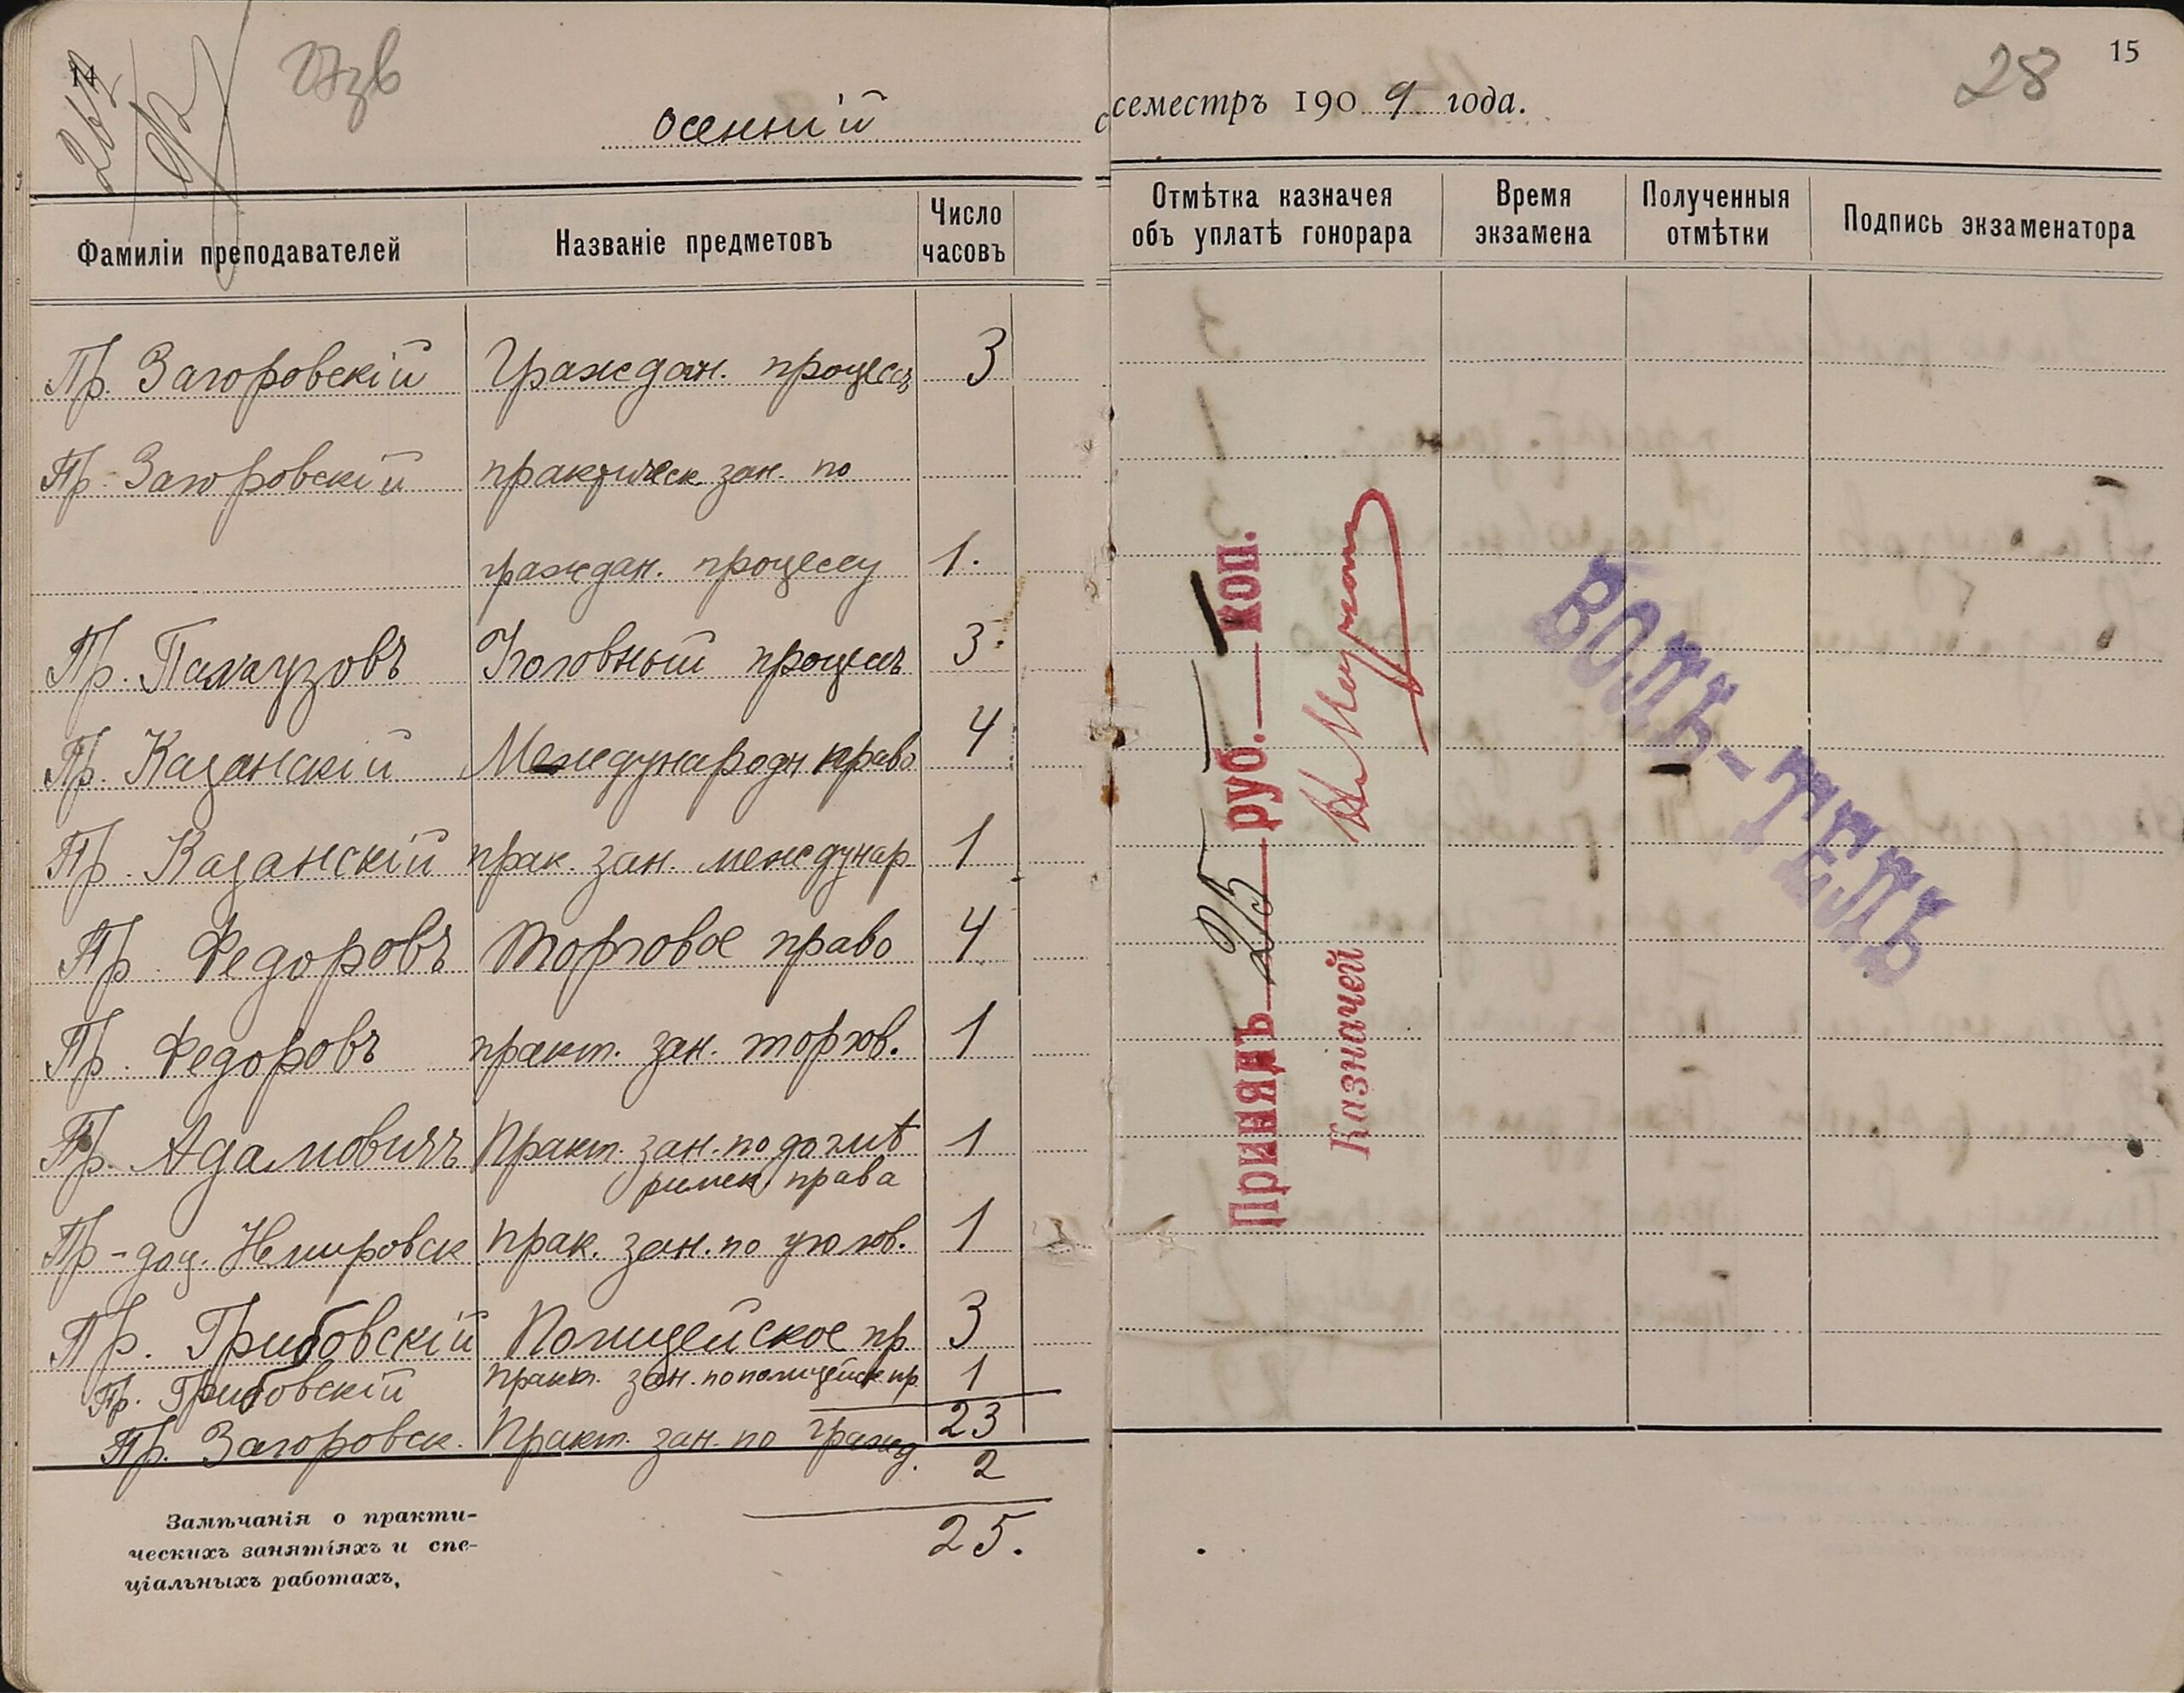 14
27зв
осенній
Фамиліи преподавателей Названіе предметовъ Число часовъ
Пр. Загоровскій Граждан. процессъ 3
Пр. Загоровскій практическ. зан. по
граждан. процессу 1.
Пр. Палаузовъ Уголовный процессъ 3
Пр. Казанскій Международн право 4
Пр. Казанскій прак. зан. междунар 1
Пр. Федоровъ Торговое право 4
Пр. Федоровъ практ. зан. торгов. 1
Пр. Адамовичъ Практ. зан. по догмѣ 1
римск. права
Пр-доц. Немировск прак. зан. по уголов. 1
Пр. Грибовскій Полицейское пр 3
Пр. Грибовскій Практ. зан. по полицейск. пр. 1
23
Пр. Загоровск. Практ. зан. по гражд. 2
25.
Замѣчанія о практи-
ческихъ занятіяхъ и спе-
ціальныхъ работахъ,
15
28
семестръ 1909 года.
Отмѣтка казначея объ уплатѣ гонорара Время экзамена Полученныя отмѣтки Подпись экзаменатора
Принялъ 25 руб. — коп.
Казначей
ВОЛЬ-ТЕЛЬ